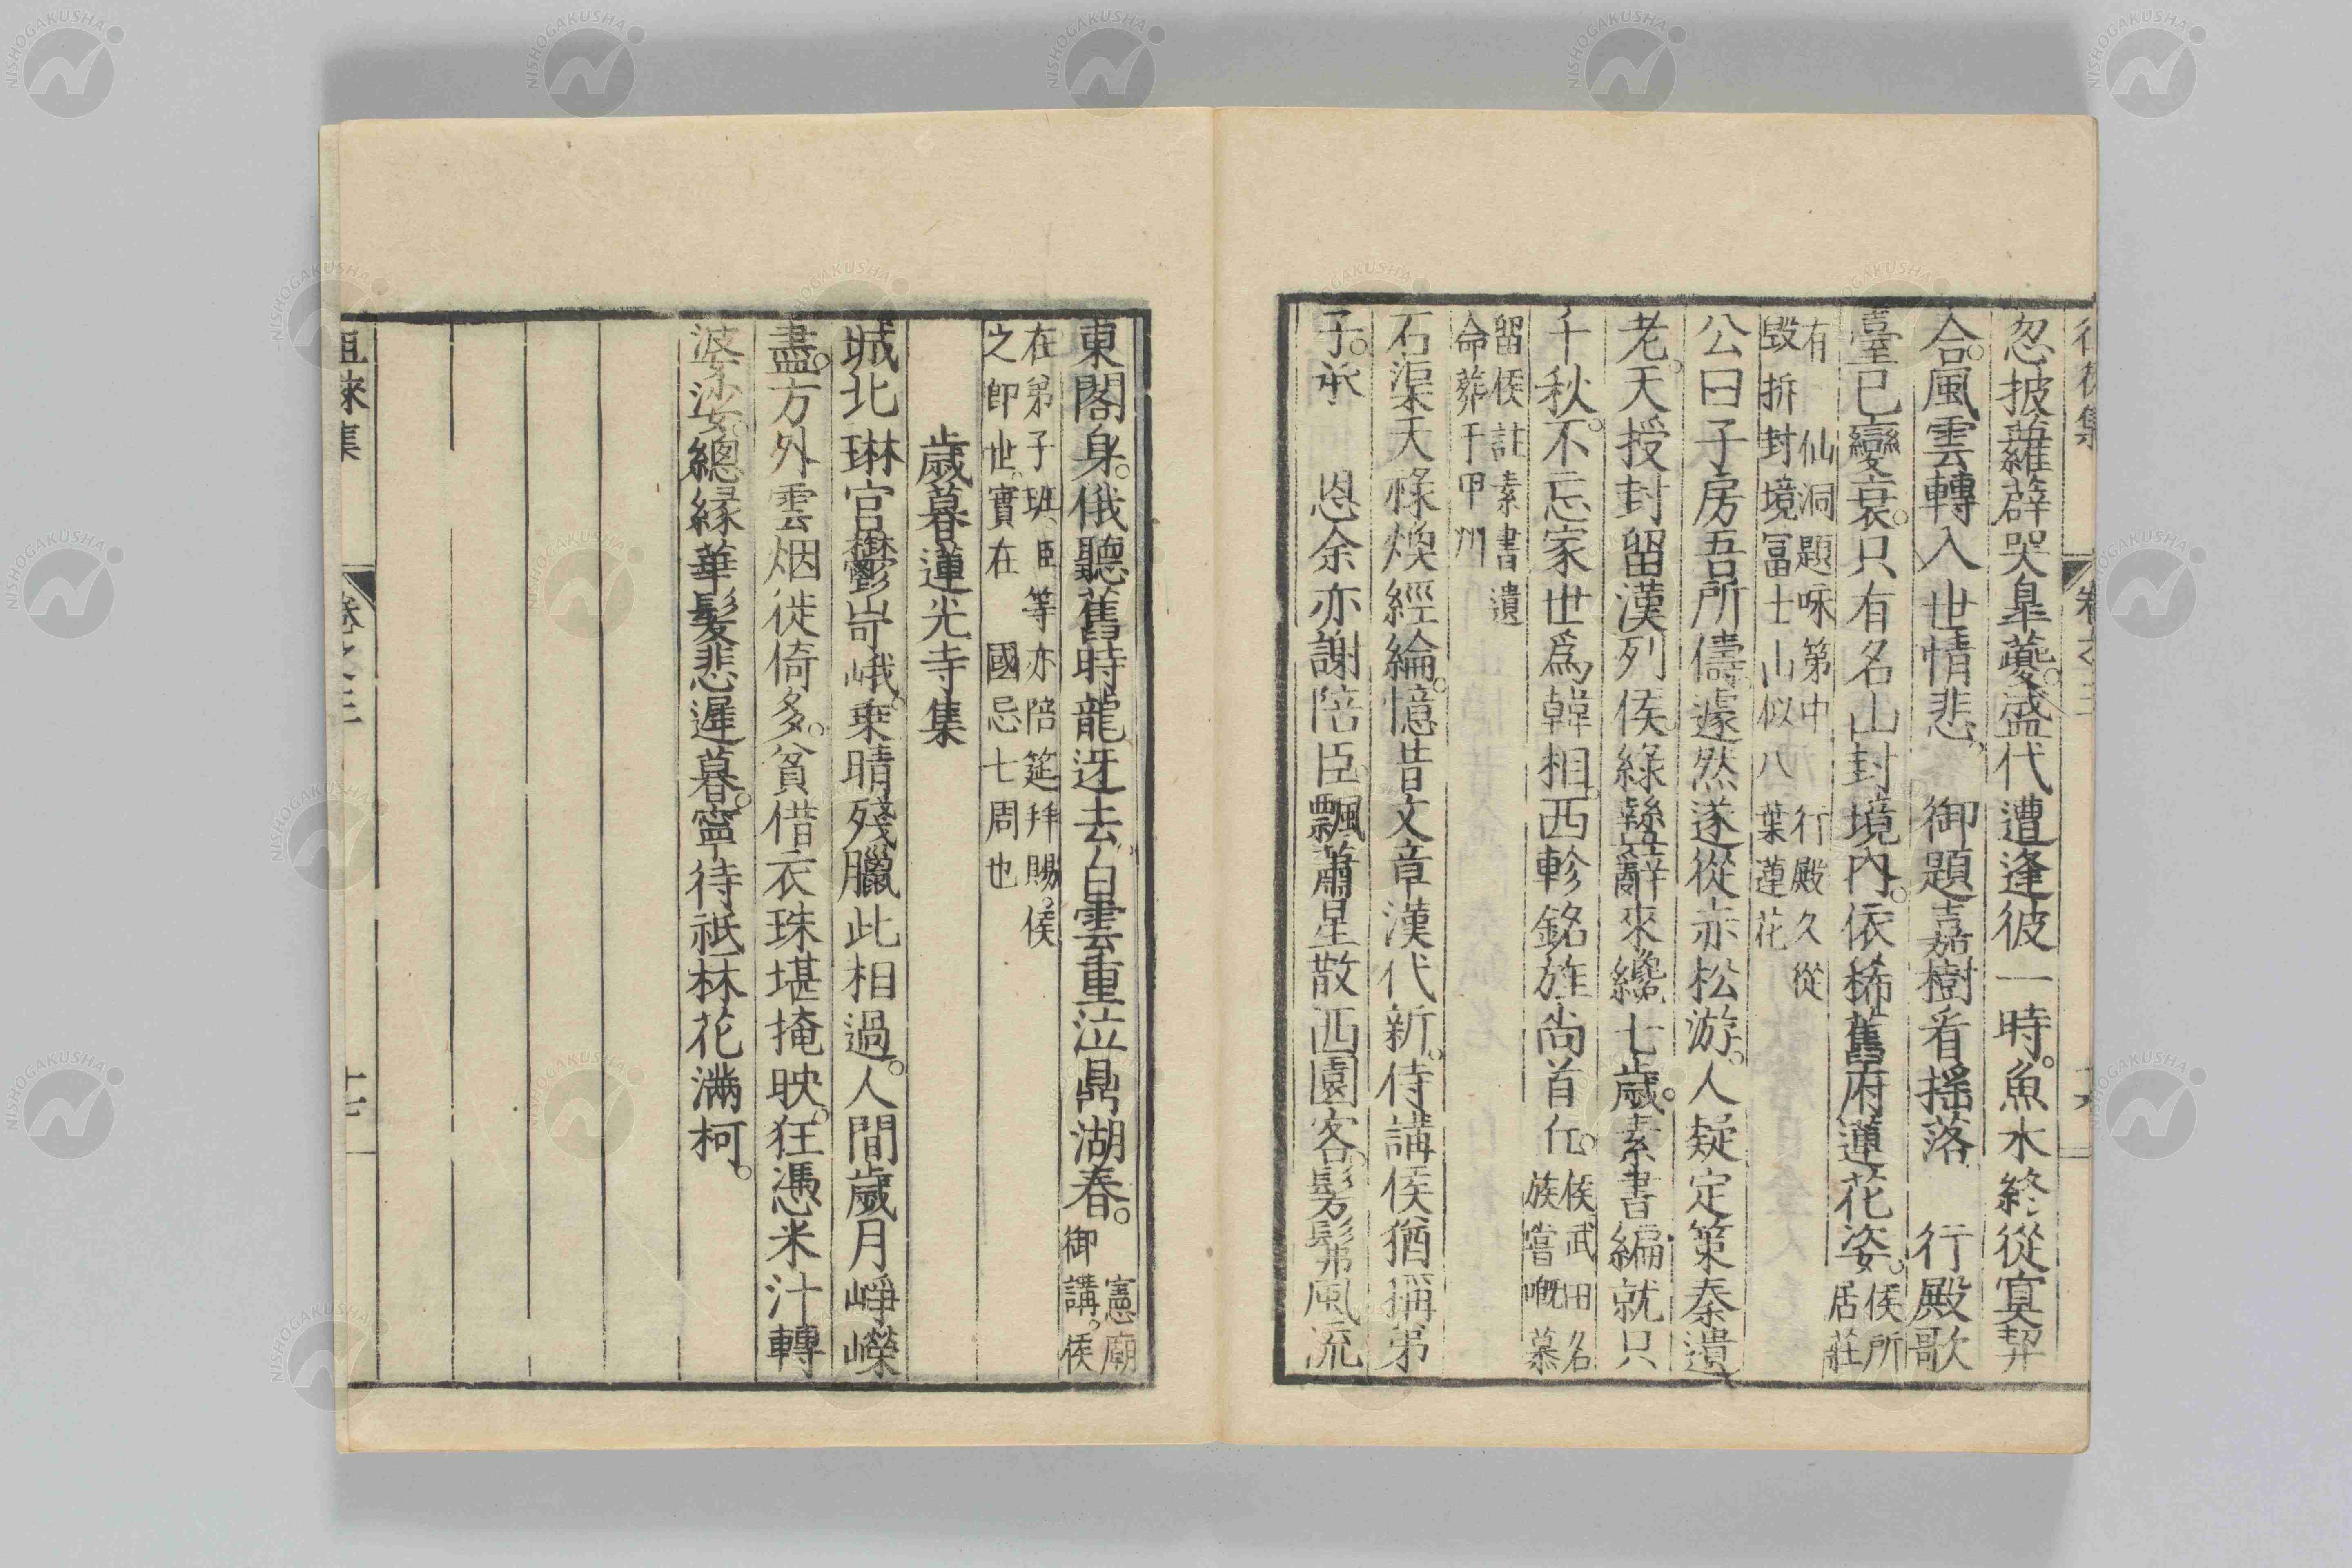 徂徠集 卷之三 十六
忽披蘿薜哭皐夔。盛代遭逢彼一時。魚水終從寞契
合。風雲轉入世情悲。 御題嘉樹看搖落 行殿歌
臺已變衰。只有名山封境內。依稀舊府蓮花姿。侯所居莊
有 仙洞題咏第中 行殿久從
毀拆封境冨士山似八葉蓮花
公曰子房吾所儔。遽然遂從赤松游。人疑定策秦遺
老。天授封留漢列侯。綠鬒辭來纔七歲。素書編就只
千秋。不忘家世爲韓相。西軫銘旌尚首丘。侯武田名族嘗嘅慕
留侯註素書遺
命葬于甲州
石渠天祿煥經綸。憶昔文章漢代新。侍講侯猶稱弟
子。承 恩余亦謝陪臣。飄蕭星散西園客。髣髴風流
東閣身。俄聽舊時龍迓去。白雲重泣鼎湖春。憲廟御講。侯
在弟子班、臣等亦陪筵拜賜。侯
之卽世、實在 國忌七周也
歲暮蓮光寺集
城北琳宮鬱岢峨。乘晴殘臘此相過。人間歲月崢嶸
盡。方外雲烟徙倚多。貧借衣珠堪掩映。狂憑米汁轉
婆娑。總緣華髮悲遲暮。寧待祇林花滿柯。
徂徠集 卷之三 十七
NISHOGAKUSHA